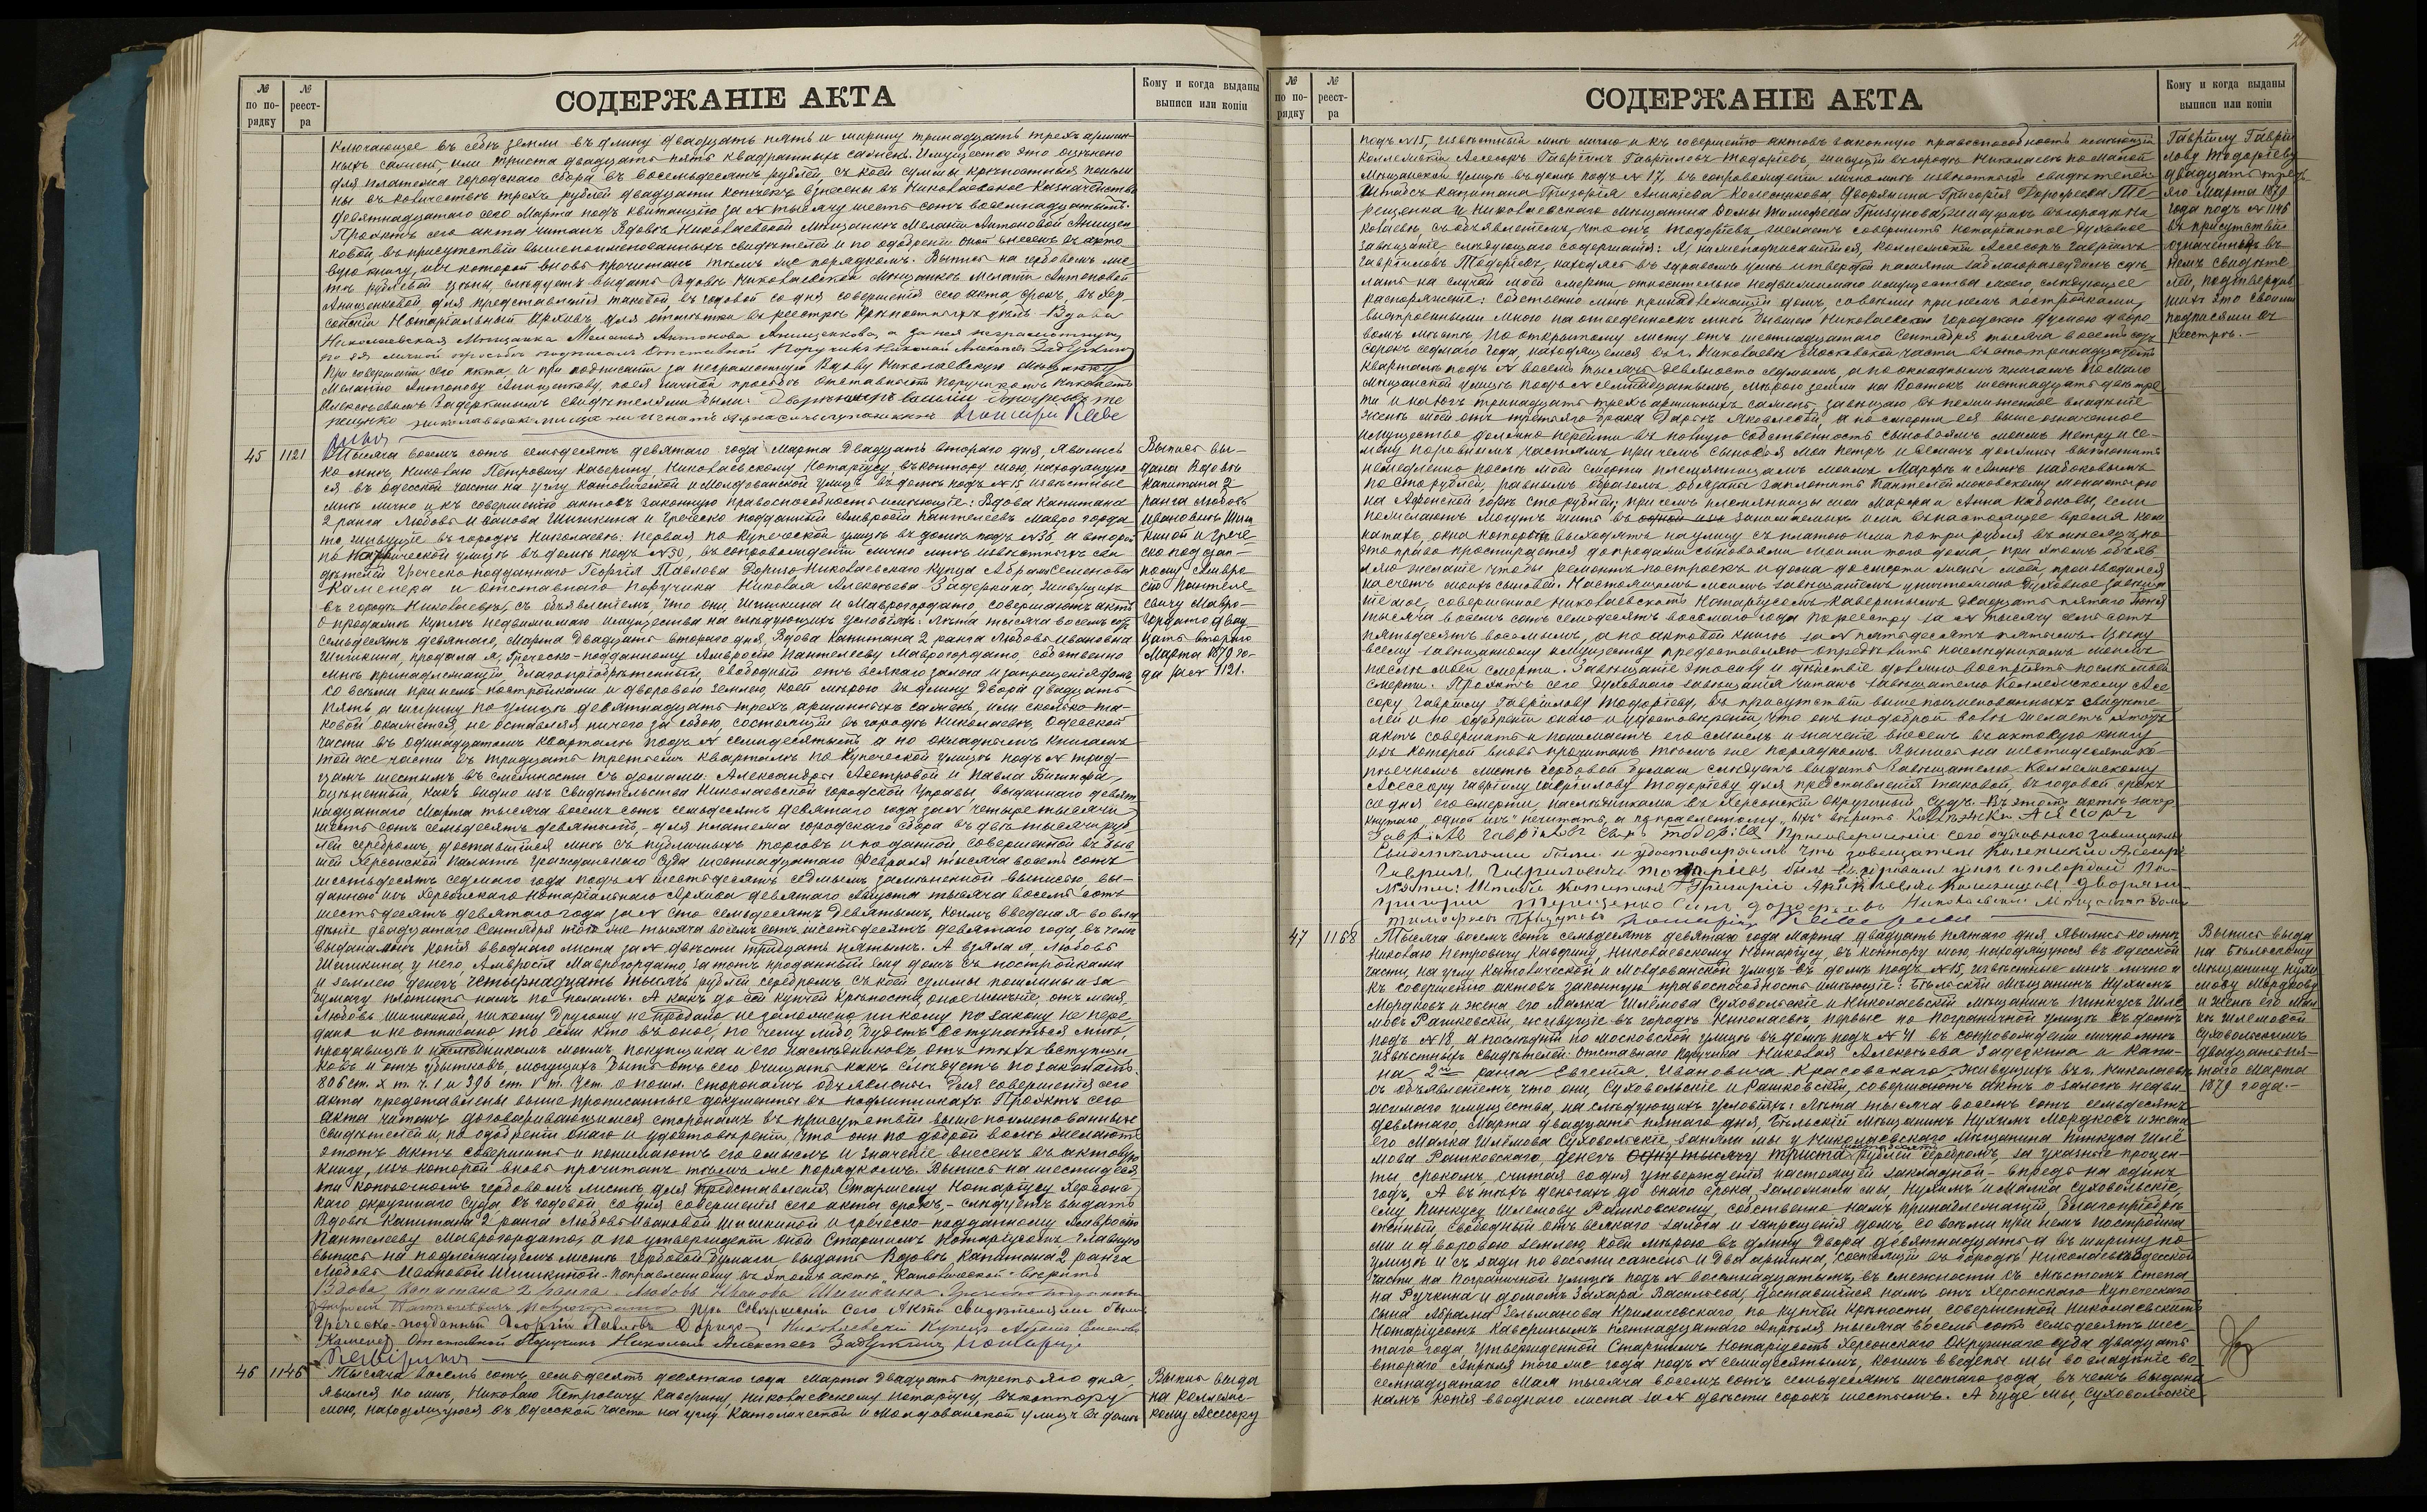 № по порядку
№ реестра
СОДЕРЖАНІЕ АКТА
Кому и когда выданы выписи или копіи
ключающее въ себѣ земли въ длину двадцать пять и ширину тринадцать трехъ аршин-
ныхъ саженъ, или триста двадцать пять квадратныхъ саженъ. Имущество это оцѣнено
для платежа городскаго сбора въ восемьдесятъ рублей, съ коей суммы крѣпостныя пошли-
ны въ количествѣ трехъ рублей двадцати копѣекъ взнесены въ Николаевское Казначейство
девятнадцатаго сего Марта подъ квитанцію за № тысячу шесть сотъ восемнадцатымъ.
Проэктъ сего акта читанъ Вдовѣ Николаевской Мѣщанкѣ Меланіи Антоновой Анищен-
ковой, въ присутствіи вышепоименованныхъ свидѣтелей и по одобреніи оной внесенъ въ акто-
вую книгу, изъ которой вновь прочитанъ тѣмъ же порядкомъ. Выпись на гербовомъ ли-
стѣ рублевой цѣны, слѣдуетъ выдать Вдовѣ Николаевской Мѣщанкѣ Меланіи Антоновой
Анищенковой для представленія таковой, въ годовой со дня совершенія сего акта срокъ, въ Хер-
сонскій Нотаріальный Архивъ для отмѣтки въ реестрѣ крѣпостныхъ дѣлъ. Вдова
Николаевская Мѣщанка Меланья Антонова Анищенкова, а за нея неграмотную,
по ея личной просьбѣ подписалъ Отставной Поручикъ Николай Алексѣевъ Задеркинъ
При совершеніи сего акта и при подписаніи за неграмотную Вдову Николаевскую Мѣщанку
Меланію Антонову Анищенкову, по ея личной просьбѣ отставнымъ Поручикомъ Николаемъ
Алексѣевымъ Задеркинымъ свидѣтелями были:
45 1121
Тысяча восемь сотъ семьдесятъ девятаго года Марта двадцать втораго дня, явились
ко мнѣ Николаю Петровичу Каверину, Николаевскому Нотаріусу, въ контору мою, находящую-
ся въ Одесской части на углу Католической и Молдованской улицъ въ домѣ подъ №15 извѣстные
мнѣ лично и къ совершенію актовъ законную правоспособность имѣющіе: Вдова Капитана
2 ранга Любовь Иванова Шишкина и Греческо подданный Амвросій Пантелеевъ Маврогорда-
то, живущіе въ городѣ Николаевѣ: первая по Купеческой улицѣ въ домѣ подъ №36, а второй
по Католической улицѣ въ домѣ подъ №30, въ сопровожденіи лично мнѣ извѣстныхъ сви-
дѣтелей Греческо-подданнаго Георгія Павлова Доризо Николаевскаго Купца Абрама Семенова
Каменера и отставнаго Поручика Николая Алексѣева Задеркина, живущихъ
въ городѣ Николаевѣ, съ объявленіемъ, что они, Шишкина и Маврогордато, совершаютъ актъ
о продажѣ куплѣ недвижимаго имущества на слѣдующихъ условіяхъ: Лѣта тысяча восемь сотъ
семьдесятъ девятаго, Марта двадцать втораго дня, Вдова Капитана 2 ранга Любовь Ивановна
Шишкина, продала я, Греческо-подданному Амвросію Пантелееву Маврогордато, собственно
мнѣ принадлежащій, благопріобрѣтенный, свободный отъ всякаго залога и запрещенія домъ,
со всѣми при немъ постройками и дворовою землею, коей мѣрою въ длину двора двадцать
пять, а ширину по улицѣ девятнадцать трехъ аршинныхъ саженъ, или сколько та-
ковой окажется, не оставляя ничего за собою, состоящій въ городѣ Николаевѣ, Одесской
части въ одинадцатомъ кварталѣ подъ № семидесятымъ, а по окладнымъ книгамъ
той же части въ тридцать третьемъ кварталѣ по Купеческой улицѣ подъ № трид-
цать шестымъ, въ смежности съ домами: Александры Асетровой и Павла Бишифа,
оцѣненный, какъ видно изъ свидѣтельства Николаевской городской Управы, выданнаго девят-
надцатаго Марта тысяча восемь сотъ семьдесятъ девятаго года за № четыре тысячи
шесть сотъ семьдесятъ девятымъ,- для платежа городскаго сбора въ двѣ тысячи руб-
лей серебромъ, доставшійся мнѣ съ публичныхъ торговъ и по данной, совершенной въ быв-
шей Херсонской Палатѣ Гражданскаго Суда шестнадцатаго Февраля тысяча восемь сотъ
шестьдесятъ седмаго года подъ № шестьдесятъ седмымъ замѣненной выписью, вы-
данною изъ Херсонскаго Нотаріальнаго Архива девятаго Августа тысяча восемь сотъ
шестьдесятъ девятаго года за № сто семьдесятъ девятымъ, коимъ введена я во вла-
дѣніе двадцатаго Сентября того же тысяча восемь сотъ шестьдесятъ девятаго года, въ чемъ
выдана мнѣ копія вводнаго листа за № двѣсти тридцать пятымъ. А взяла я, Любовь
Шишкина, у него, Амвросія Маврогордато, за тотъ проданный ему домъ съ постройками
и землею денегъ четырнадцать тысячъ рублей серебромъ, съ коей суммы пошлины и за
бумагу платить намъ по поламъ. А какъ до сей купчей крѣпости, оное имѣніе, отъ меня,
Любовь Шишкиной, никому другому не продано, не заложено, ни кому по закону не пере
дано и не отписано, то если кто въ оное, по чему либо, будетъ вступаться, мнѣ,
продавицѣ и наслѣдникамъ моимъ, покупщика и его наслѣдниковъ, отъ тѣхъ вступщи-
ковъ и отъ убытковъ, могущихъ быть отъ сего очищать какъ слѣдуетъ по законамъ.
806 ст. X т. ч. 1 и 396 ст. V т. Уст. о пошл. сторонамъ объявлены. Для совершенія сего
акта представлены выше прописанные документы въ подлинникахъ Проэктъ сего
акта читанъ договаривающимся сторонамъ въ присутствіи вышепоименованныхъ
свидѣтелей и, по одобреніи онаго и удостовѣреніи, что они по доброй волѣ желаютъ
этотъ актъ совершить и понимаютъ его смыслъ и значеніе внесенъ въ актовую
книгу, изъ которой вновь прочитанъ тѣмъ же порядкомъ. Выпись на шестидеся-
ти копѣечномъ гербовомъ листѣ, для представленія Старшему Нотаріусу Херсонс-
каго окружнаго Суда, въ годовой, со дня совершенія сего акта срокъ,- слѣдуетъ выдать
Вдовѣ Капитана 2 ранга Любовь Ивановой Шишкиной и Греческо-подданному Амвросію
Пантелееву Маврогордато, а по утвержденіи оной Старшимъ Нотаріусомъ Главную
выпись на надлежащемъ листѣ гербовой бумаги выдать Вдовѣ Капитана 2 ранга
Любовь Ивановой Шишкиной. Поправленному въ этомъ актѣ „Католической“ вѣрить
Вдова Капитана 2 ранга Любовь Иванова Шишкина.
Амвросій Пантелеевичъ Маврогордато При Совершеніи Сего Акта Свидѣтелями были
Греческо-подданный Георгій Павловъ Доризо Николаевскій Купецъ Абрамъ Семеновъ
Каменеръ Отставной Поручикъ Николай Алексѣевъ Задеркинъ Нотаріусъ
Каверинъ
Выпись вы-
дана Вдовѣ
Капитана 2
ранга Любовь
Ивановнѣ Шиш
киной и Грече-
ско поддан-
ному Амвро-
сію Пантеле-
евичу Мавро-
гордато двад-
цать втораго
Марта 1879 го-
да за № 1121.
46 1146
Тысяча восемь сотъ семьдесятъ девятаго года Марта двадцать третьяго дня,
явился ко мнѣ, Николаю Петровичу Каверину, Николаевскому Нотаріусу, въ контору
мою, находящуюся въ Одесской части на углу Католической и Молдованской улицъ въ домѣ
Выпись выда
на Коллежс-
кому Асессору
№ по порядку
№ реестра
СОДЕРЖАНІЕ АКТА
Кому и когда выданы выписи или копіи
подъ №15, извѣстный мнѣ лично и къ совершенію актовъ законную правоспособность имѣющій
Коллежскій Асессоръ Гавріилъ Гавріиловъ Тодоріевъ, живущій въ городѣ Николаевѣ по Малой
Мѣщанской улицѣ въ домѣ подъ № 17, въ сопровожденіи лично мнѣ извѣстныхъ свидѣтелей
Штабсъ Капитана Григорія Аникіева Колесникова, Дворянина Григорія Дорофеева Те-
рещенко и Николаевскаго Мѣщанина Домы Тимофеева Гришунова, живущихъ въ городѣ Ни-
колаевѣ, съ объявленіемъ, что онъ, Тодоріевъ, желаетъ совершить нотаріальное духовное
завѣщаніе слѣдующаго содержанія: Я, нижеподписавшійся, Коллежскій Асессоръ Гавріилъ
Гавріиловъ Тодоріевъ, находясь въ здравомъ умѣ и твердой памяти заблагоразсудилъ сдѣ-
лать на случай моей смерти, относительно недвижимаго имущества моего, слѣдующее
распоряженіе: собственно мнѣ принадлежащій домъ, со всѣми при немъ постройками,
выстроенными мною на отведенномъ мнѣ бывшею Николаевскою городскою Думою дворо-
вомъ мѣстѣ, по открытому листу отъ шестнадцатаго Сентября тысяча восемь сотъ
сорокъ седмаго года, находящемся въ г. Николаевѣ Московской части въ сто тринадцатомъ
кварталѣ подъ № восемь тысячъ девяносто седмымъ, а по окладнымъ книгамъ по Мало
Мѣщанской улицѣ подъ № семнадцатымъ, мѣрою земли на Востокъ шестнадцать двѣ тре
ти и на югъ тринадцать трехъ аршинныхъ саженъ, завѣщаю въ пожизненное владѣніе
женѣ моей отъ третьяго брака Дарьѣ Яковлевой, а по смерти ея выше означенное
имущество должно перейти въ полную собственность сыновьямъ моимъ Петру и Се-
мену поровнымъ частямъ, при чемъ сыновья мои Петръ и Семенъ должны выплатить
немедленно послѣ моей смерти племянницамъ моимъ Марфѣ и Аннѣ Набоковымъ
по сто рублей, равнымъ образомъ обязаны заплатить Пантелеимоновскому монастырю
на Афонской горѣ сто рублей; при семъ племянницы мои Марфа и Анна Набоковы, если
пожелаютъ могутъ жить въ одной изъ занимаемыхъ ими въ настоящее время ком
натахъ, окна которыхъ выходятъ на улицу съ платою ими по три рубля въ мѣсяцъ, но
это право простирается до продажи сыновьями моими того дома при этомъ объяв
ляю желаніе чтобы ремонтъ построекъ и дома до смерти жены моей, производился
на счетъ моихъ сыновей. Настоящимъ моимъ завѣщаніемъ уничтожаю духовное завѣща
ніе мое, совершенное Николаевскимъ Нотаріусомъ Каверинымъ двадцать пятаго Іюня
тысяча восемь сотъ семьдесятъ восьмаго года по реестру за № тысячу семь сотъ
пятьдесятъ восьмымъ, а по актовой книгѣ за № пятьдесятъ пятымъ. Цѣну
всему завѣщанному имуществу предоставляю опредѣлить наслѣдникамъ моимъ
послѣ моей смерти. Завѣщаніе это силу и дѣйствіе должно воспріять послѣ моей
смерти. Проэктъ сего духовнаго завѣщанія читанъ завѣщателю Коллежскому Асе
сору Гавріилу Гавріилову Тодоріеву, въ присутствіи вышепоименованныхъ свидѣте
лей и по одобреніи онаго и удостовѣреніи, что онъ по доброй волѣ желаетъ этотъ
актъ совершить и понимаетъ его смыслъ и значеніе внесенъ въ актовую книгу
изъ которой вновь прочитанъ тѣмъ же порядкомъ. Выпись на шестидесяти ко-
пѣечномъ листѣ гербовой бумаги слѣдуетъ выдать завѣщателю Коллежскому
Асессору Гавріилу Гавріилову Тодоріеву для представленія таковой, въ годовой срокъ
со дня его смерти, наслѣдниками въ Херсонскій Окружный Судъ. Въ этомъ актѣ зачер
кнутаго „одной изъ“ нечитать, а поправленному „ыхъ“ вѣрить Коллежскій Асессоръ
Гавріилъ Гавріиловъ сынъ Тодоріевъ При совершеніи сего духовнаго завѣщанія
Свидѣтелями были и удостовѣряемъ что завещатель Колежский Асесоръ
Гаврилъ Гавриловичъ Тодоріевъ былъ въ здравомъ умѣ и твердой па-
мяти: Штабсъ Капитанъ Григорій Аникѣевъ Колесниковъ, дворянинъ
Григорий Терещенко сынъ дорофѣевъ Николаевский Мѣщанинъ Дома
Тимофеевъ Гришуновъ Нотаріусъ Каверинъ
Гаврійлу Гаврій
лову Тодоріеву
двадцать треть
яго Марта 1879
года подъ № 1146
въ присутствіи
означенныхъ въ
немъ свидѣте-
лей, подтвердив
шихъ это своими
подписями въ
реестрѣ.-
47 1168
Тысяча восемь сотъ семьдесятъ девятаго года Марта двадцать пятаго дня, явились ко мнѣ
Николаю Петровичу Каверину, Николаевскому Нотаріусу, въ контору мою, находящуюся въ Одесской
части, на углу Католической и Молдованской улицъ въ домѣ подъ №15, извѣстные мнѣ лично и
къ совершенію актовъ законную правоспособность имѣющіе: Бѣльскій Мѣщанинъ Нухимъ
Мордковъ и жена его Малка Шлёмова Суховольскіе и Николаевскій Мѣщанинъ Пинкусъ Шлё
мовъ Рашковскій, живущіе въ городѣ Николаевѣ, первые по Пограничной улицѣ въ домѣ
подъ №18, а послѣдній по Московской улицѣ въ домѣ подъ № 41 въ сопровожденіи лично мнѣ
извѣстныхъ свидѣтелей: отставнаго Поручика Николая Алексѣева Задеркина и Капи-
на 2го ранга Евгенія Ивановича Красовскаго, живущихъ въ г. Николаевѣ
съ объявленіемъ, что они, Суховольскіе и Рашковскій, совершаютъ актъ о залогѣ недви
жимаго имущества, на слѣдующихъ условіяхъ: Лѣта тысяча восемь сотъ семьдесятъ
девятаго, Марта двадцать пятаго дня, Бѣльскій Мѣщанинъ Нухимъ Мордковъ и жена
его Малка Шлёмова Суховольскіе, заняли мы у Николаевскаго Мѣщанина Пинкуса Шлё
мова Рашковскаго, денегъ одну тысячу триста рублей серебромъ, за указные процен-
ты, срокомъ, считая со дня утвержденія настоящей закладной,- впредь на одинъ
годъ, А въ тѣхъ деньгахъ до онаго срока, заложили мы, Нухимъ и Малка Суховольскіе,
ему Пинкусу Шлёмову Рашковскому, собственно намъ принадлежащій, благопріобрѣ
тенный, свободный отъ всякаго залога и запрещенія домъ, со всѣми при немъ постройка
ми и дворовою землею, коей мѣрою въ длину двора девятнадцать а въ ширину по
улицѣ и съ зади по восьми саженъ и два аршина, состоящій въ городѣ Николаевѣ Одесской
части, на Пограничной улицѣ подъ № восемнадцатымъ, въ смежности съ мѣстомъ Степа
на Ручкина и домомъ Захара Васильева, доставшійся намъ отъ Херсонскаго Купеческаго
сына Абрама Зельманова Криличевскаго, по купчей крѣпости, совершенной Николаевскимъ
Нотаріусомъ Каверинымъ пятнадцатаго Апрѣля тысяча восемь сотъ семьдесятъ шес-
таго года, утвержденной Старшимъ Нотаріусомъ Херсонскаго Окружнаго Суда двадцать
втораго Апрѣля того же года подъ № семидесятымъ, коимъ введены мы во владѣніе во-
семнадцатаго Мая тысяча восемь сотъ семьдесятъ шестаго года, въ чемъ выдана
намъ копія вводнаго листа за № двѣсти сорокъ шестымъ. А буде мы, Суховольскіе
Выпись выда
на Бѣльскому
мѣщанину Нухи
мову Мордкову
и женѣ его Мал
кѣ Шлемовой
Суховольскимъ
двадцать пя-
таго Марта
1879 года.-